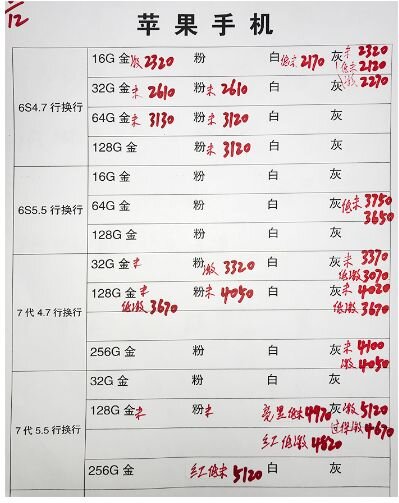 12
苹果手机
6S4.7行换行
16G 金 激2320 粉 白 低未2170 灰 未2320
低未2120
32G 金 未2610 粉 未2610 白 灰 激2270
64G 金 未3130 粉 未3120 白 灰
128G 金 粉 未3120 白 灰
6S5.5行换行
16G 金 粉 白 灰
64G 金 粉 白 灰 低未3750
3650
128G 金 粉 白 灰
7代4.7行换行
32G 金 未 粉 激3320 白 灰 未3370
低激3070
128G 金 未 粉 未4050 白 灰 未4020
低激3670 低激3670
256G 金 粉 白 灰 未4100
激4050
7代5.5行换行
32G 金 粉 白 灰
128G 金 未 粉 未 亮黑低未4970 灰 激5120
红低激4820 过保激4670
256G 金 红低未5120 白 灰